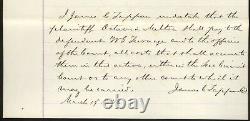 I James C Tappan undertake that the
plaintiff Melton shall pay to the
defendant and to the officers
of the Court, all costs that shall accrue to
them in this action, either in the
Court or to any other court to which it
may be carried
James C Tappan
March 15